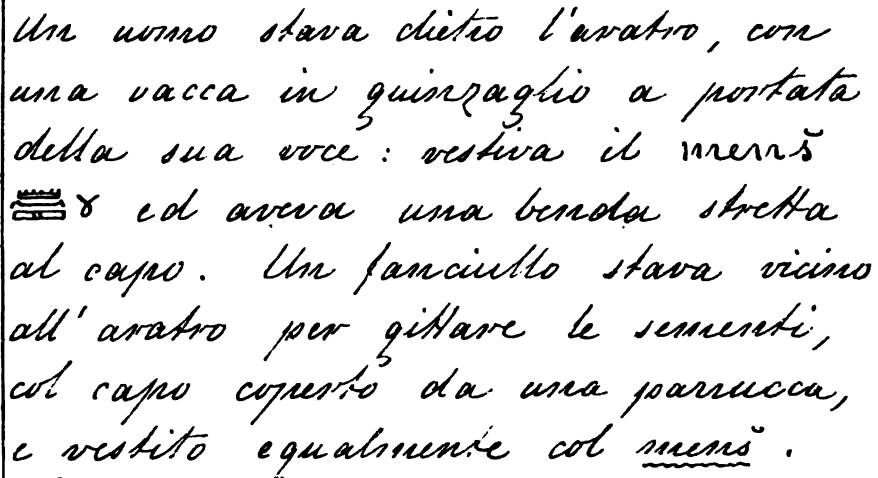 Un uomo stava dietro l'aratro, con
una vacca in guinzaglio a portata
della sua voce: vestiva il menš
ed aveva una benda stretta
al capo. Un fanciullo stava vicino
all'aratro per gittare le sementi,
col capo coperto da una parrucca,
e vestito egualmente col menš.